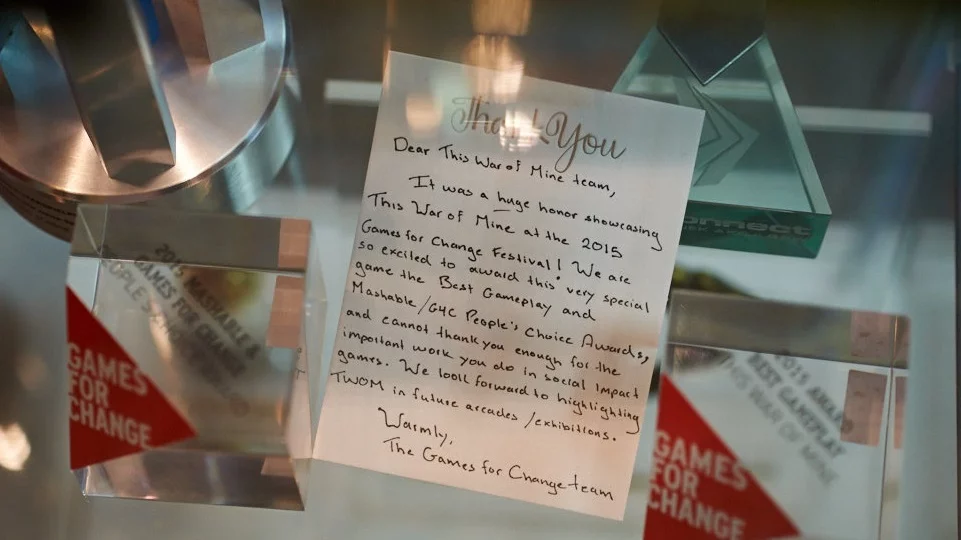 Thank You
Dear This War of Mine team,
It was a huge honor showcasing
This War of Mine at the 2015
Games for Change Festival! We are
so excited to award this very special
game the Best Gameplay and
Mashable/G4C People's Choice Awards,
and cannot thank you enough for the
important work you do in social impact
games. We look forward to highlighting
TWOM in future arcades/exhibitions.
Warmly,
The Games for Change team
2015 MASHABLE &
GAMES FOR CHANGE
GAMES
FOR
CHANGE
2015 AWARD
BEST GAMEPLAY
THIS WAR OF MINE
GAMES
FOR
CHANGE